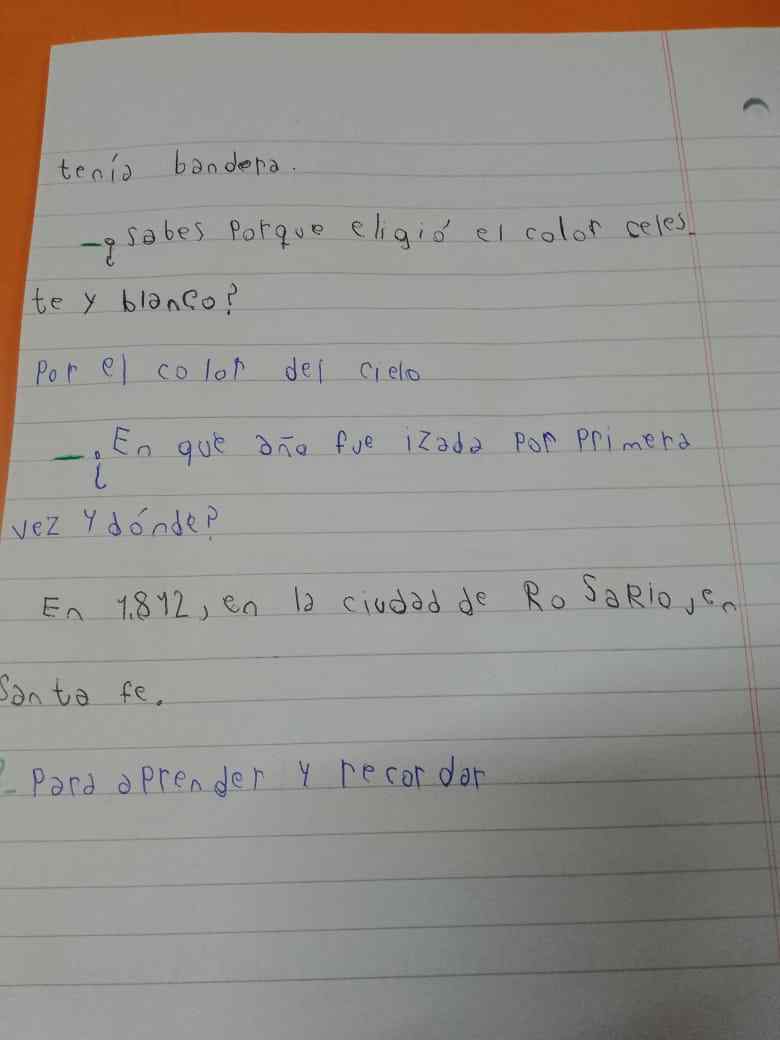 tenía bandera.
-¿sabes porque eligió el color celes_
te y blanco?
Por el color del cielo
-¿En que año fue izada por primera
vez y dónde?
En 1.812, en la ciudad de RoSaRio, en
Santa fe.
2- Para aprender y recordar